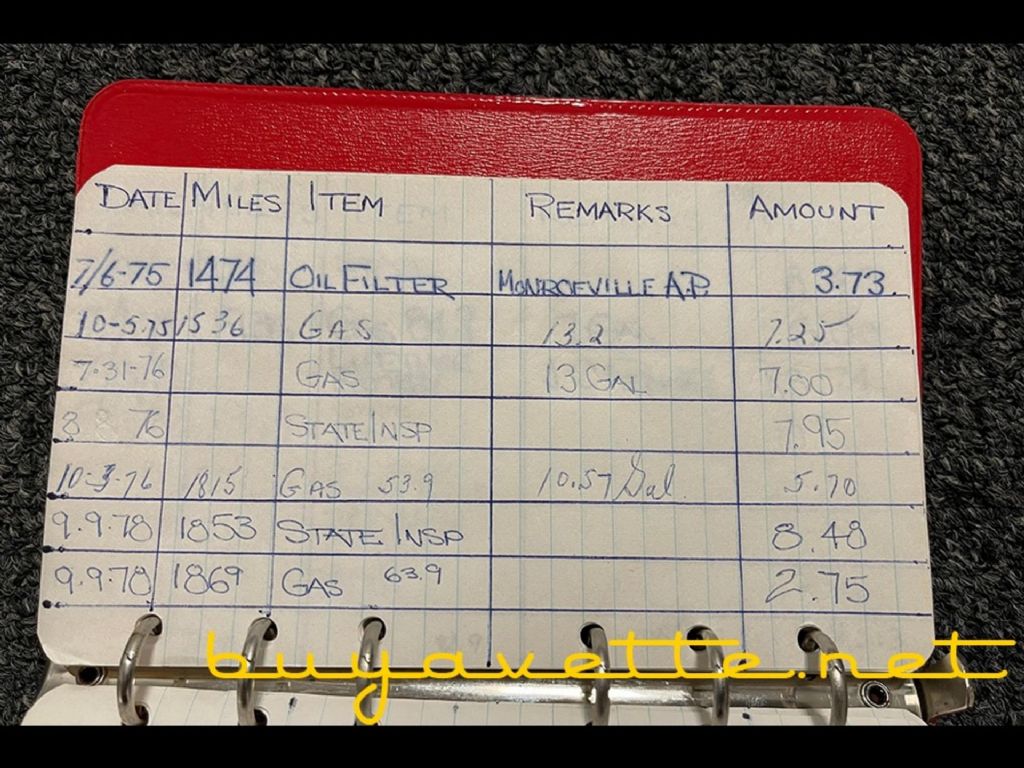 DATE MILES ITEM REMARKS AMOUNT
7/6-75 1474 OIL FILTER MONROEVILLE A.P. 3.73.
10-5.75 1536 GAS 13.2 7.25
7-31-76 GAS 13 GAL 7.00
8 8 76 STATE INSP 7.95
10-3-76 1815 GAS 53.9 10.57 Gal 5.70
9.9.78 1853 STATE INSP 8.48
9.9.78 1869 GAS 63.9 2.75
buyavette.net